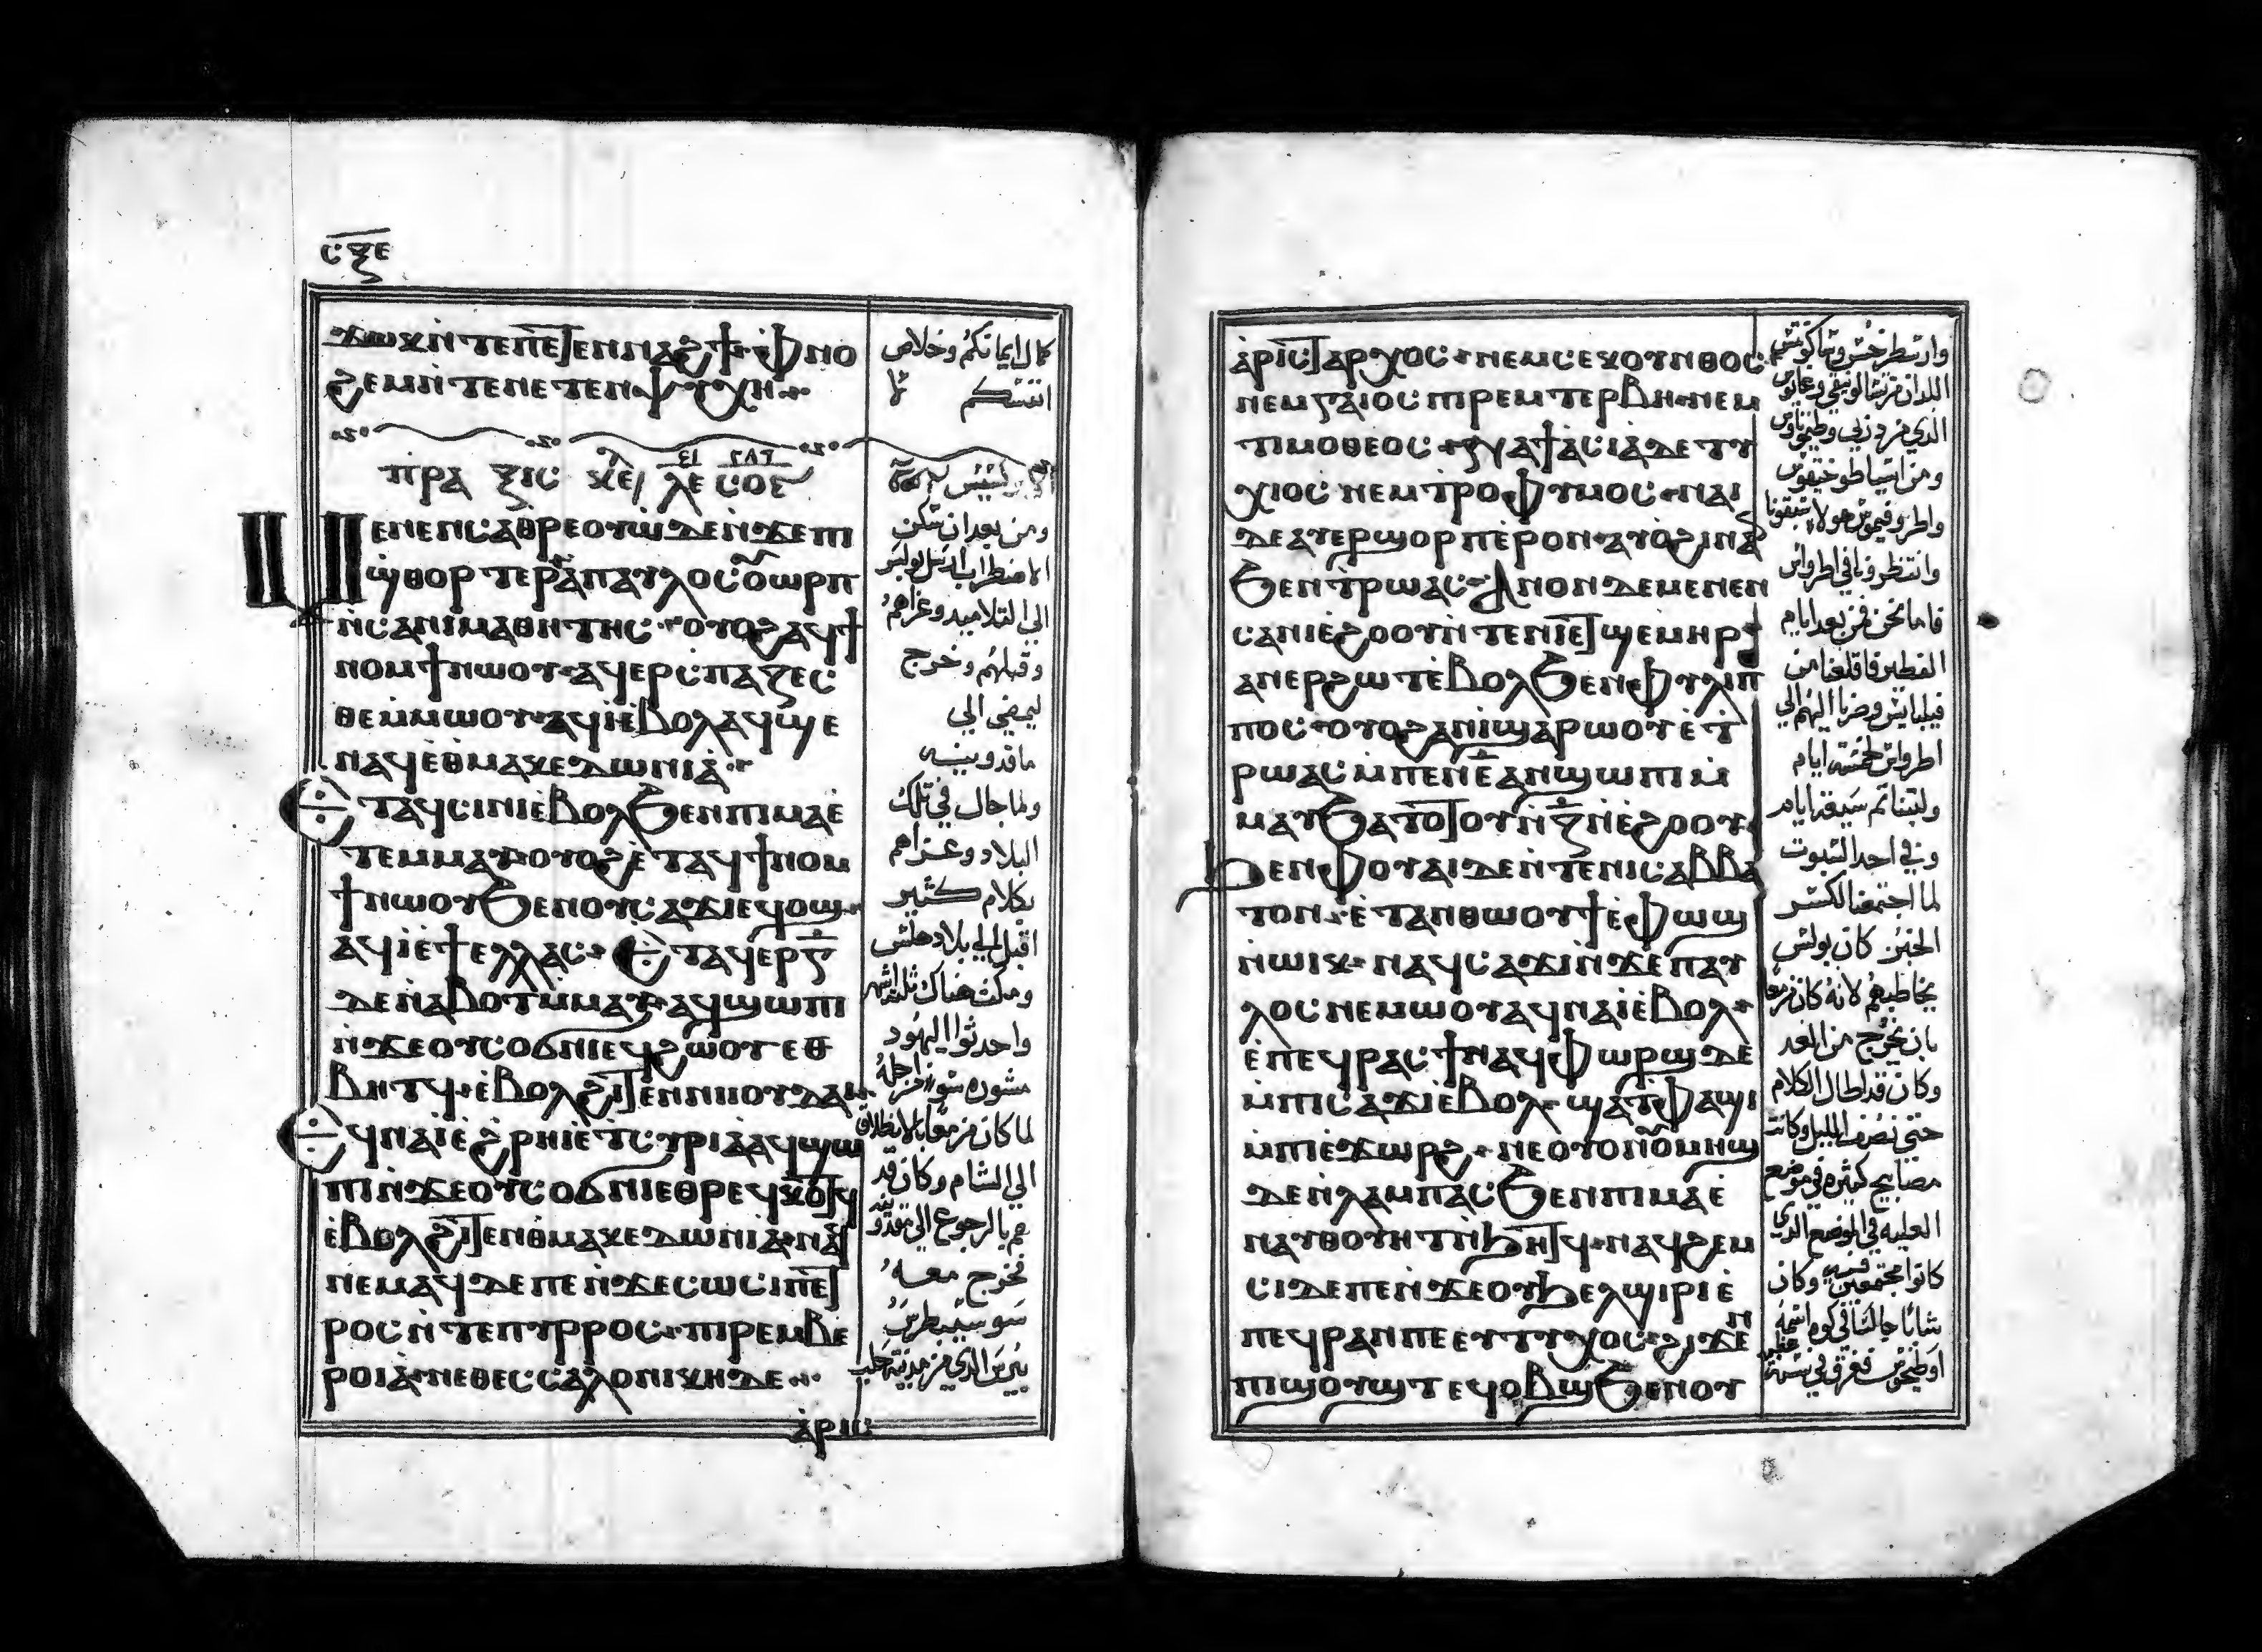 ⲥⲝⲉ
ϫⲱⲕ ⲛ̀ⲧⲉ ⲡⲉⲧⲉⲛⲛⲁϩϯ ⲫ̀ⲛⲟ
ϩⲉⲙ ⲛ̀ⲧⲉ ⲛⲉⲧⲉⲛⲯⲩⲭⲏ
ⲡⲣⲁⲝⲓⲥ ⲕⲉ ⲗⲉ ⲥⲟⲋ
ⲙⲉⲛⲉⲛⲥⲁ ⲑ̀ⲣⲉⲟⲩⲱ ⲇⲉ ⲛ̀ϫⲉ ⲡⲓ
ϣ̀ⲑⲟⲣⲧⲉⲣ ⲁ̀ ⲡⲁⲩⲗⲟⲥ ⲟⲩⲱⲣⲡ
ⲛ̀ⲥⲁ ⲛⲓⲙⲁⲑⲏⲧⲏⲥ ⲟⲩⲟϩ ⲁϥϯ
ⲛⲟⲙϯ ⲛⲱⲟⲩ ⲁϥⲉⲣⲥ̀ⲡⲁⲍⲉⲥ
ⲑⲉ ⲙ̀ⲙⲱⲟⲩ ⲁϥⲓ̀ ⲉ̀ⲃⲟⲗ ⲁϥϣⲉ
ⲛⲁϥ ⲉ̀ⲑ̀ⲙⲁⲕⲉⲇⲱⲛⲓⲁ̀
ⲉ̀ⲧⲁϥⲥⲓⲛⲓ ⲉ̀ⲃⲟⲗ ϧⲉⲛ ⲡⲓⲙⲁ ⲉ̀
ⲧⲉⲙⲙⲁⲩ ⲟⲩⲟϩ ⲉ̀ⲧⲁϥϯⲛⲟⲙ
ϯ ⲛⲱⲟⲩ ϧⲉⲛ ⲟⲩⲥⲁϫⲓ ⲉϥⲟϣ
ⲁϥⲓ̀ ⲉ̀ϯⲉⲗⲗⲁⲥ ⲉ̀ⲧⲁϥⲉⲣ ⲅ̅
ⲇⲉ ⲛ̀ⲁⲃⲟⲧ ⲙ̀ⲙⲁⲩ ⲁϥϣⲱⲡⲓ
ⲛ̀ϫⲉ ⲟⲩⲥⲟϭⲛⲓ ⲉϥϩⲱⲟⲩ ⲉⲑ
ⲃⲏⲧϥ ⲉ̀ⲃⲟⲗϩⲓⲧⲉⲛ ⲛⲓⲓⲟⲩⲇⲁⲓ
ⲉ̀ϥⲛⲁⲓ̀ ⲉ̀ϩ̀ⲣⲏⲓ ⲉ̀ⲧ̀ⲥⲩⲣⲓⲁ ⲁϥϣⲱ
ⲡⲓ ⲛ̀ϫⲉ ⲟⲩⲥⲟϭⲛⲓ ⲉⲑⲣⲉϥⲕⲟⲧϥ
ⲉ̀ⲃⲟⲗϩⲓⲧⲉⲛ ⲑ̀ⲙⲁⲕⲉⲇⲱⲛⲓⲁ̀ ⲛⲁϥ
ⲛⲉⲙⲁϥ ⲇⲉ ⲡⲉ ⲛ̀ϫⲉ ⲥⲱⲥⲓⲡⲉⲧ
ⲣⲟⲥ ⲛ̀ⲧⲉ ⲡⲩⲣⲣⲟⲥ ⲡⲓⲣⲉⲙⲃⲉ
ⲣⲟⲓⲁ̀ ⲛⲉⲑⲉⲥⲥⲁⲗⲟⲛⲓⲕⲏ ⲇⲉ
ⲁ̀ⲣⲓⲥ
كمال ايمانكم وخلاص
انفسكم
ومن بعد ان سكن
الاضطراب ارسل بولس
الي التلاميد وعزاهم
وقبلهم وخرج
ليمضي الي
ماقدونيه
ولما جال في تلك
البلاد وعزاهم
بكلام كثير
اقبل الي بلاد هلس
ومكث هناك ثلثة اشهر
واحدثوا اليهود
مشوره سو من اجله
لما كان مزمعا بالانطلاق
الي الشام وكان قد
هم بالرجوع الي مقدونيه
فخرج معه
سوسيبطرس
بيرس الدي من مدينة حلب
ⲁ̀ⲣⲓⲥⲧⲁⲣⲭⲟⲥ ⲛⲉⲙ ⲥⲉⲕⲟⲩⲛⲑⲟⲥ
ⲛⲉⲙ ⲅⲁⲓⲟⲥ ⲡⲓⲣⲉⲙⲧⲉⲣⲃⲏ ⲛⲉⲙ
ⲧⲓⲙⲟⲑⲉⲟⲥ ⲛⲁ ϯⲁ̀ⲥⲓⲁ̀ ⲇⲉ ⲧⲩ
ⲭⲓⲟⲥ ⲛⲉⲙ ⲧⲣⲟⲫⲩⲙⲟⲥ ⲛⲁⲓ
ⲇⲉ ⲁⲩⲉⲣϣⲟⲣⲡ ⲉ̀ⲣⲟⲛ ⲁⲩⲟ̀ϩⲓ ⲛⲁⲛ
ϧⲉⲛ ⲧ̀ⲣⲱⲁⲥ ⲁⲛⲟⲛ ⲇⲉ ⲙⲉⲛⲉⲛ
ⲥⲁ ⲛⲓⲉ̀ϩⲟⲟⲩ ⲛ̀ⲧⲉ ⲛⲓⲁⲧϣⲉⲙⲏⲣ
ⲁⲛⲉⲣϩⲱⲧ ⲉ̀ⲃⲟⲗ ϧⲉⲛ ⲉⲫⲩⲗⲓⲡ
ⲡⲟⲥ ⲟⲩⲟϩ ⲁⲛⲓ̀ ϣⲁⲣⲱⲟⲩ ⲉ̀ⲧ̀
ⲣⲱⲁⲥ ⲙ̀ⲡⲉⲛⲉ̅ ⲁⲛϣⲱⲡⲓ ⲙ̀
ⲙⲁⲩ ϧⲁⲧⲟⲧⲟⲩ ⲛ̀ⲍ̅ ⲛ̀ⲉ̀ϩⲟⲟⲩ
ϧⲉⲛ ⲫⲟⲩⲁⲓ ⲇⲉ ⲛ̀ⲧⲉ ⲛⲓⲥⲁⲃⲃⲁ
ⲧⲟⲛ ⲉ̀ⲧⲁⲛⲑⲱⲟⲩϯ ⲉ̀ⲫⲱϣ
ⲛ̀ⲱⲓⲕ ⲛⲁϥⲥⲁϫⲓ ⲛ̀ϫⲉ ⲡⲁⲩ
ⲗⲟⲥ ⲛⲉⲙⲱⲟⲩ ⲁϥⲛⲁⲓ̀ ⲉ̀ⲃⲟⲗ
ⲉ̀ⲡⲉϥⲣⲁⲥϯ ⲛⲁϥⲫⲱⲣϣ ⲇⲉ
ⲙ̀ⲡⲓⲥⲁϫⲓ ⲉ̀ⲃⲟⲗ ϣⲁ ⲧ̀ⲫⲁϣⲓ
ⲙ̀ⲡⲓⲉ̀ϫⲱⲣϩ ⲛⲉ ⲟⲩⲟⲛ ⲟⲩⲙⲏϣ
ⲇⲉ ⲛ̀ⲗⲁⲙⲡⲁⲥ ϧⲉⲛ ⲡⲓⲙⲁ ⲉ̀
ⲛⲁⲩⲑⲟⲩⲏⲧ ⲛ̀ϧⲏⲧϥ ⲛⲁϥϩⲉⲙ
ⲥⲓ ⲇⲉ ⲡⲉ ⲛ̀ϫⲉ ⲟⲩϧⲉⲗϣⲓⲣⲓ ⲉ̀
ⲡⲉϥⲣⲁⲛ ⲡⲉ ⲉⲩⲧⲩⲭⲟⲥ ϩⲓϫⲉⲛ
ⲡⲓϣⲟⲩϣⲧ ⲉϥⲟⲃϣ ϧⲉⲛ ⲟⲩ
وارسطرخس وساكونتس
اللدان من تسالونيقي وغايوس
الدي من دربي وطيموتاوس
ومن اسيا طوخيقوس
واطروفيموس هولاء سبقونا
وانتظرونا في اطرواس
فاما نحن فمن بعد ايام
الفطير فاقلعنا من
فيلبايس وصرنا اليهم الي
اطرواس خمسة ايام
ولبثنا ثم سبعة ايام
وفي احد السبوت
لما اجتمعنا لكسر
الخبز كان بولس
يخاطبهم لانه كان مزمعا
بان يخرج من الغد
وكان قد اطال الكلام
حتي نصف الليل وكانت
مصابيح كثيره في موضع
العليه في الموضع الدي
كانوا مجتمعين فيه وكان
شابا جالسا في كوه اسمه
اوطيخوس فغرق في سنة